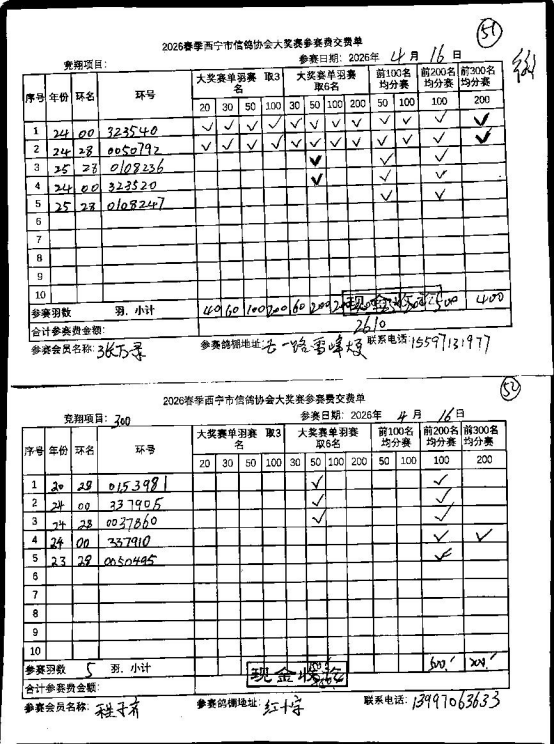 (51)
2026春季西宁市信鸽协会大奖赛参赛费交费单
竞翔项目: 参赛日期: 2026年 4 月 16 日
序号 年份 环名 环号 大奖赛单羽赛 取3名 大奖赛单羽赛 取6名 前100名均分赛 前200名均分赛 前300名均分赛
20 30 50 100 30 50 100 200 50 100 100 200
1 24 00 323540 ✓ ✓ ✓ ✓ ✓ ✓ ✓ ✓ ✓ ✓ ✓ ✓
2 24 28 0050792 ✓ ✓ ✓ ✓ ✓ ✓ ✓ ✓ ✓ ✓ ✓ ✓
3 25 28 0108236 ✓ ✓ ✓
4 24 00 323520 ✓ ✓ ✓
5 25 28 0108247 ✓ ✓
6
7
8
9
10
参赛羽数 羽. 小计 40 60 100 200 60 200 现金 500 400
合计参赛费金额: 2610
参赛会员名称: 参赛鸽棚地址: 联系电话: 15597131977
(52)
2026春季西宁市信鸽协会大奖赛参赛费交费单
竞翔项目: 300 参赛日期: 2026年 4 月 16 日
序号 年份 环名 环号 大奖赛单羽赛 取3名 大奖赛单羽赛 取6名 前100名均分赛 前200名均分赛 前300名均分赛
20 30 50 100 30 50 100 200 50 100 100 200
1 20 28 0153981 ✓ ✓
2 24 00 337905 ✓ ✓
3 24 28 0037860 ✓ ✓
4 24 00 337910 ✓ ✓
5 23 28 0050495 ✓
6
7
8
9
10
参赛羽数 5 羽. 小计 现金收 500 200
合计参赛费金额:
参赛会员名称: 参赛鸽棚地址: 红十字 联系电话: 13997063633